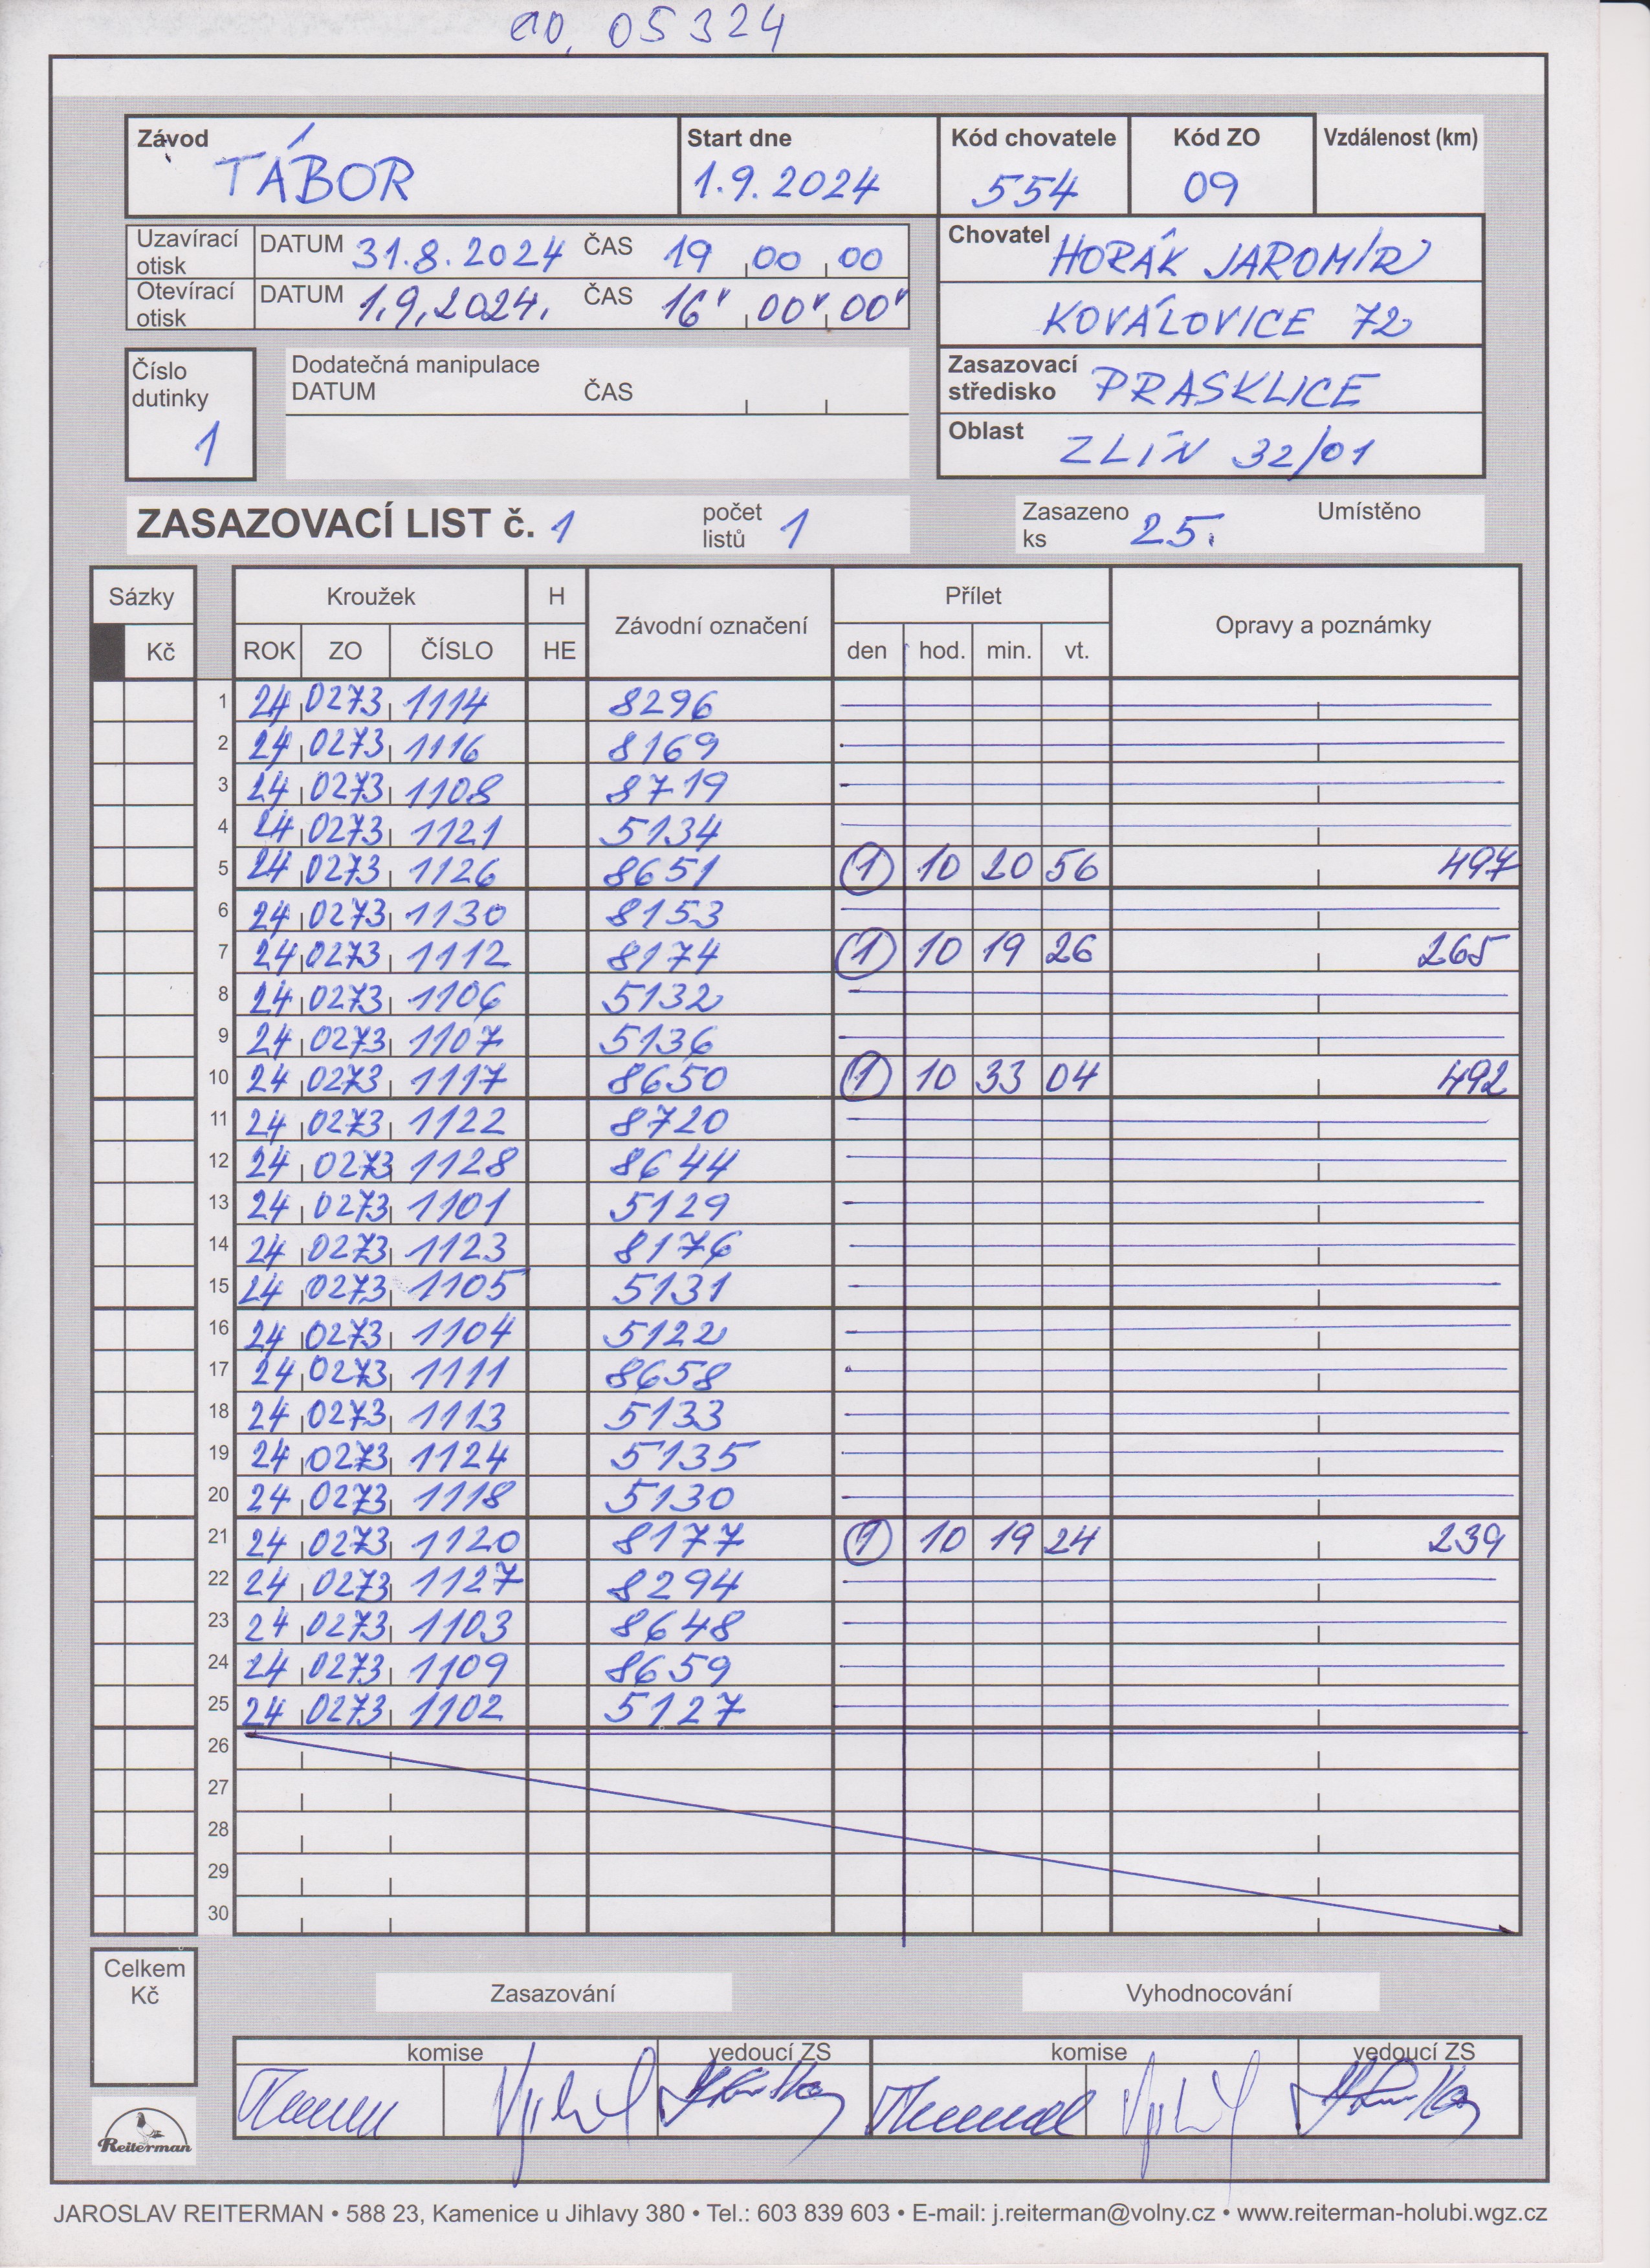 č. 05324
Závod Start dne Kód chovatele Kód ZO Vzdálenost (km)
TÁBOR 1.9.2024 554 09
Uzavírací otisk DATUM 31.8.2024 ČAS 19 00 00
Otevírací otisk DATUM 1.9.2024. ČAS 16 00 00
Chovatel HORÁK JAROMÍR
KOVÁLOVICE 72
Číslo dutinky 1
Dodatečná manipulace
DATUM ČAS
Zasazovací středisko PRASKLICE
Oblast ZLÍN 32/01
ZASAZOVACÍ LIST č. 1 počet listů 1 Zasazeno ks 25. Umístěno
Sázky Kroužek H Závodní označení Přílet Opravy a poznámky
Kč ROK ZO ČÍSLO HE den hod. min. vt.
1 24 0273 1114 8296
2 24 0273 1116 8169
3 24 0273 1108 8719
4 24 0273 1121 5134
5 24 0273 1126 8651 1 10 20 56 497
6 24 0273 1130 8153
7 24 0273 1112 8174 1 10 19 26 265
8 24 0273 1106 5132
9 24 0273 1107 5136
10 24 0273 1117 8650 1 10 33 04 492
11 24 0273 1122 8720
12 24 0273 1128 8644
13 24 0273 1101 5129
14 24 0273 1123 8176
15 24 0273 1105 5131
16 24 0273 1104 5122
17 24 0273 1111 8658
18 24 0273 1113 5133
19 24 0273 1124 5135
20 24 0273 1118 5130
21 24 0273 1120 8177 1 10 19 24 239
22 24 0273 1127 8294
23 24 0273 1103 8648
24 24 0273 1109 8659
25 24 0273 1102 5127
26
27
28
29
30
Celkem Kč
Zasazování Vyhodnocování
komise vedoucí ZS komise vedoucí ZS
Reiterman
JAROSLAV REITERMAN • 588 23, Kamenice u Jihlavy 380 • Tel.: 603 839 603 • E-mail: j.reiterman@volny.cz • www.reiterman-holubi.wgz.cz